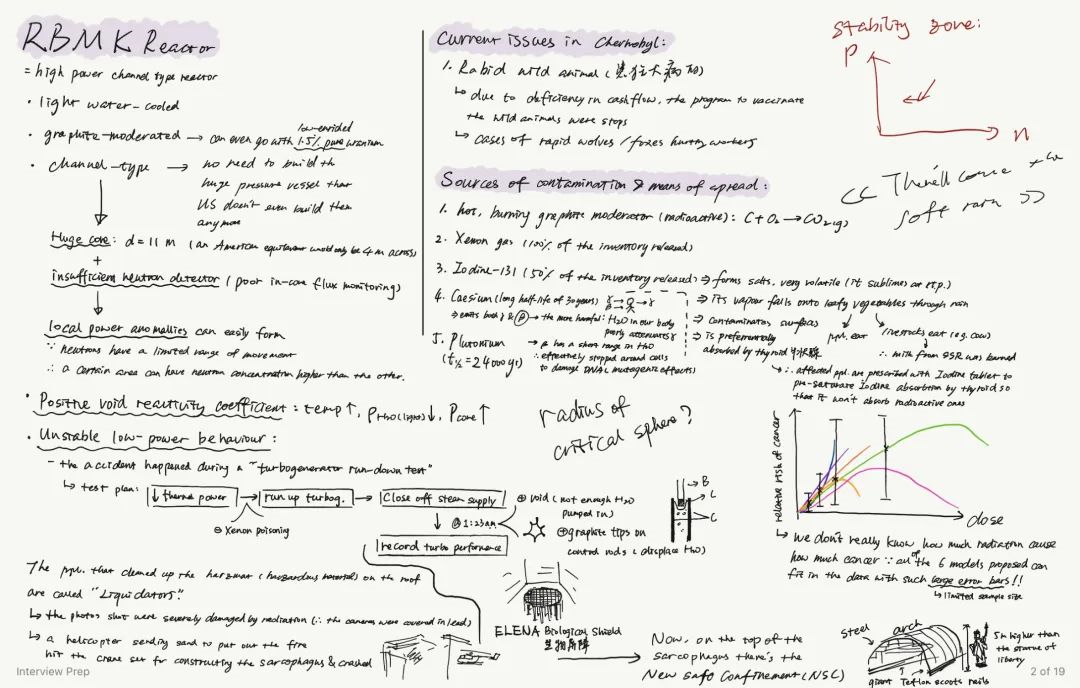 RBMK Reactor
= high power channel type reactor
• light water-cooled
• graphite-moderated → can even go with 1.5% pure uranium
low-enriched
• channel-type → no need to build th
huge pressure vessel that
US doesn't even build them
anymore
Huge core: d=11 m (an American equivalent would only be 4 m across)
+
insufficient neutron detector (poor in-core flux monitoring)
local power anomalies can easily form
∵ neutrons have a limited range of movement
∴ a certain area can have neutron concentration higher than the other.
• Positive void reactivity coefficient: temp↑, ρH2O(light)↓, Pcore↑
• Unstable low-power behaviour:
- the accident happened during a "turbogenerator run-down test"
↳ test plan: ↓ thermal power → run up turbog. → Close off steam supply
⊖ Xenon poisoning
↓ @ 1:23am
record turbo performance
⊕ void (not enough H2O
pumped in)
⊕ graphite tips on
control rods (displace H2O)
B
L
C
The ppl. that cleaned up the hazmat (hazardous material) on the roof
are called "Liquidators"
↳ the photos shot were severely damaged by radiation (∵ the cameras were covered in lead)
↳ a helicopter sending sand to put out the fire
hit the crane set for constructing the sarcophagus & crashed
ELENA Biological Shield
生物屏障
Now, on the top of the
sarcophagus there's the
New Safe Confinement (NSC)
steel arch
giant Teflon scoots rails
5m higher than
the statue of
liberty
Current issues in Chernobyl:
1. Rabid wild animal (患狂犬病的)
↳ due to deficiency in cashflow, the program to vaccinate
the wild animals were stops
↳ cases of rapid wolves / foxes hurting workers
Sources of contamination & means of spread:
1. hot, burning graphite moderator (radioactive): C + O2 → CO2 (g)
2. Xenon gas (100% of the inventory released)
3. Iodine-131 (50% of the inventory released) ⇒ forms salts, very volatile (it sublimes at r.t.p.)
⇒ its vapour falls onto leafy vegetables through rain
⇒ contaminates surfaces
⇒ is preferentially
absorbed by thyroid 甲状腺
ppl. eat
livestocks eat (e.g. cow)
∴ milk from SSR was burned
∴ affected ppl. are prescribed with Iodine tablet to
pre-saturate Iodine absorption by thyroid so
that it won't absorb radioactive ones
4. Caesium (long half-life of 30 years)
⇒ emits both γ & β → the more harmful: H2O in our body
poorly attenuates γ
β has a short range in H2O
∴ effectively stopped around cells
to damage DNA (mutagenic effects)
5. Plutonium
(t½ = 24000 yr)
radius of
critical sphere?
Stability zone:
P
n
<< There'll come
soft rain >>
relative risk of cancer
dose
↳ We don't really know how much radiation cause
how much cancer ∵ all of the 6 models proposed can
fit in the data with such large error bars!!
↳ limited sample size
Interview Prep
2 of 19